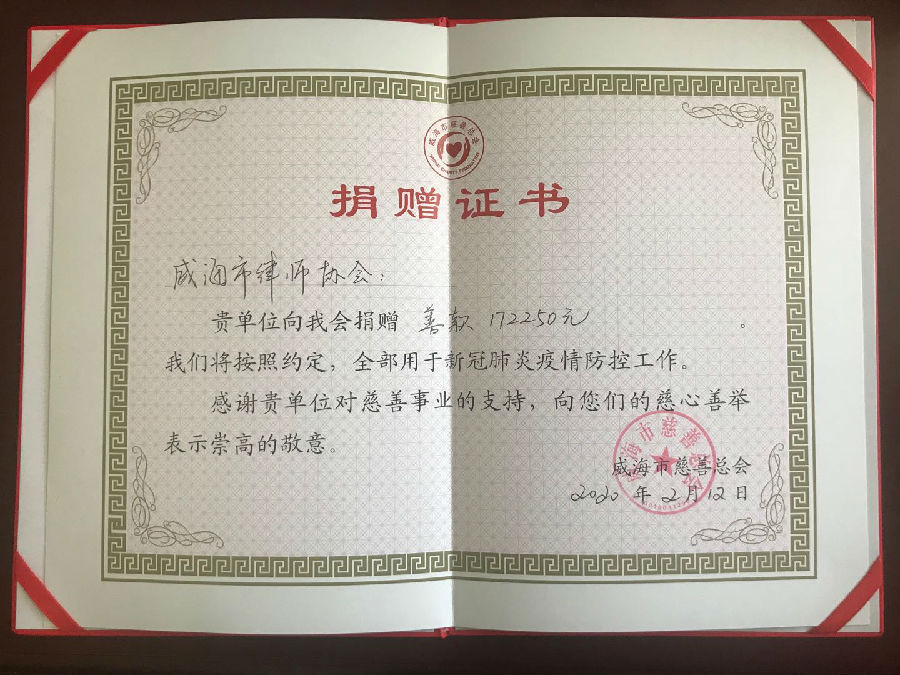 威海市慈善总会
捐赠证书
威海市律师协会：
贵单位向我会捐赠 善款 172250元 。
我们将按照约定，全部用于新冠肺炎疫情防控工作。
感谢贵单位对慈善事业的支持，向您们的慈心善举
表示崇高的敬意。
威海市慈善总会
威海市慈善总会
2020 年 2 月 12 日